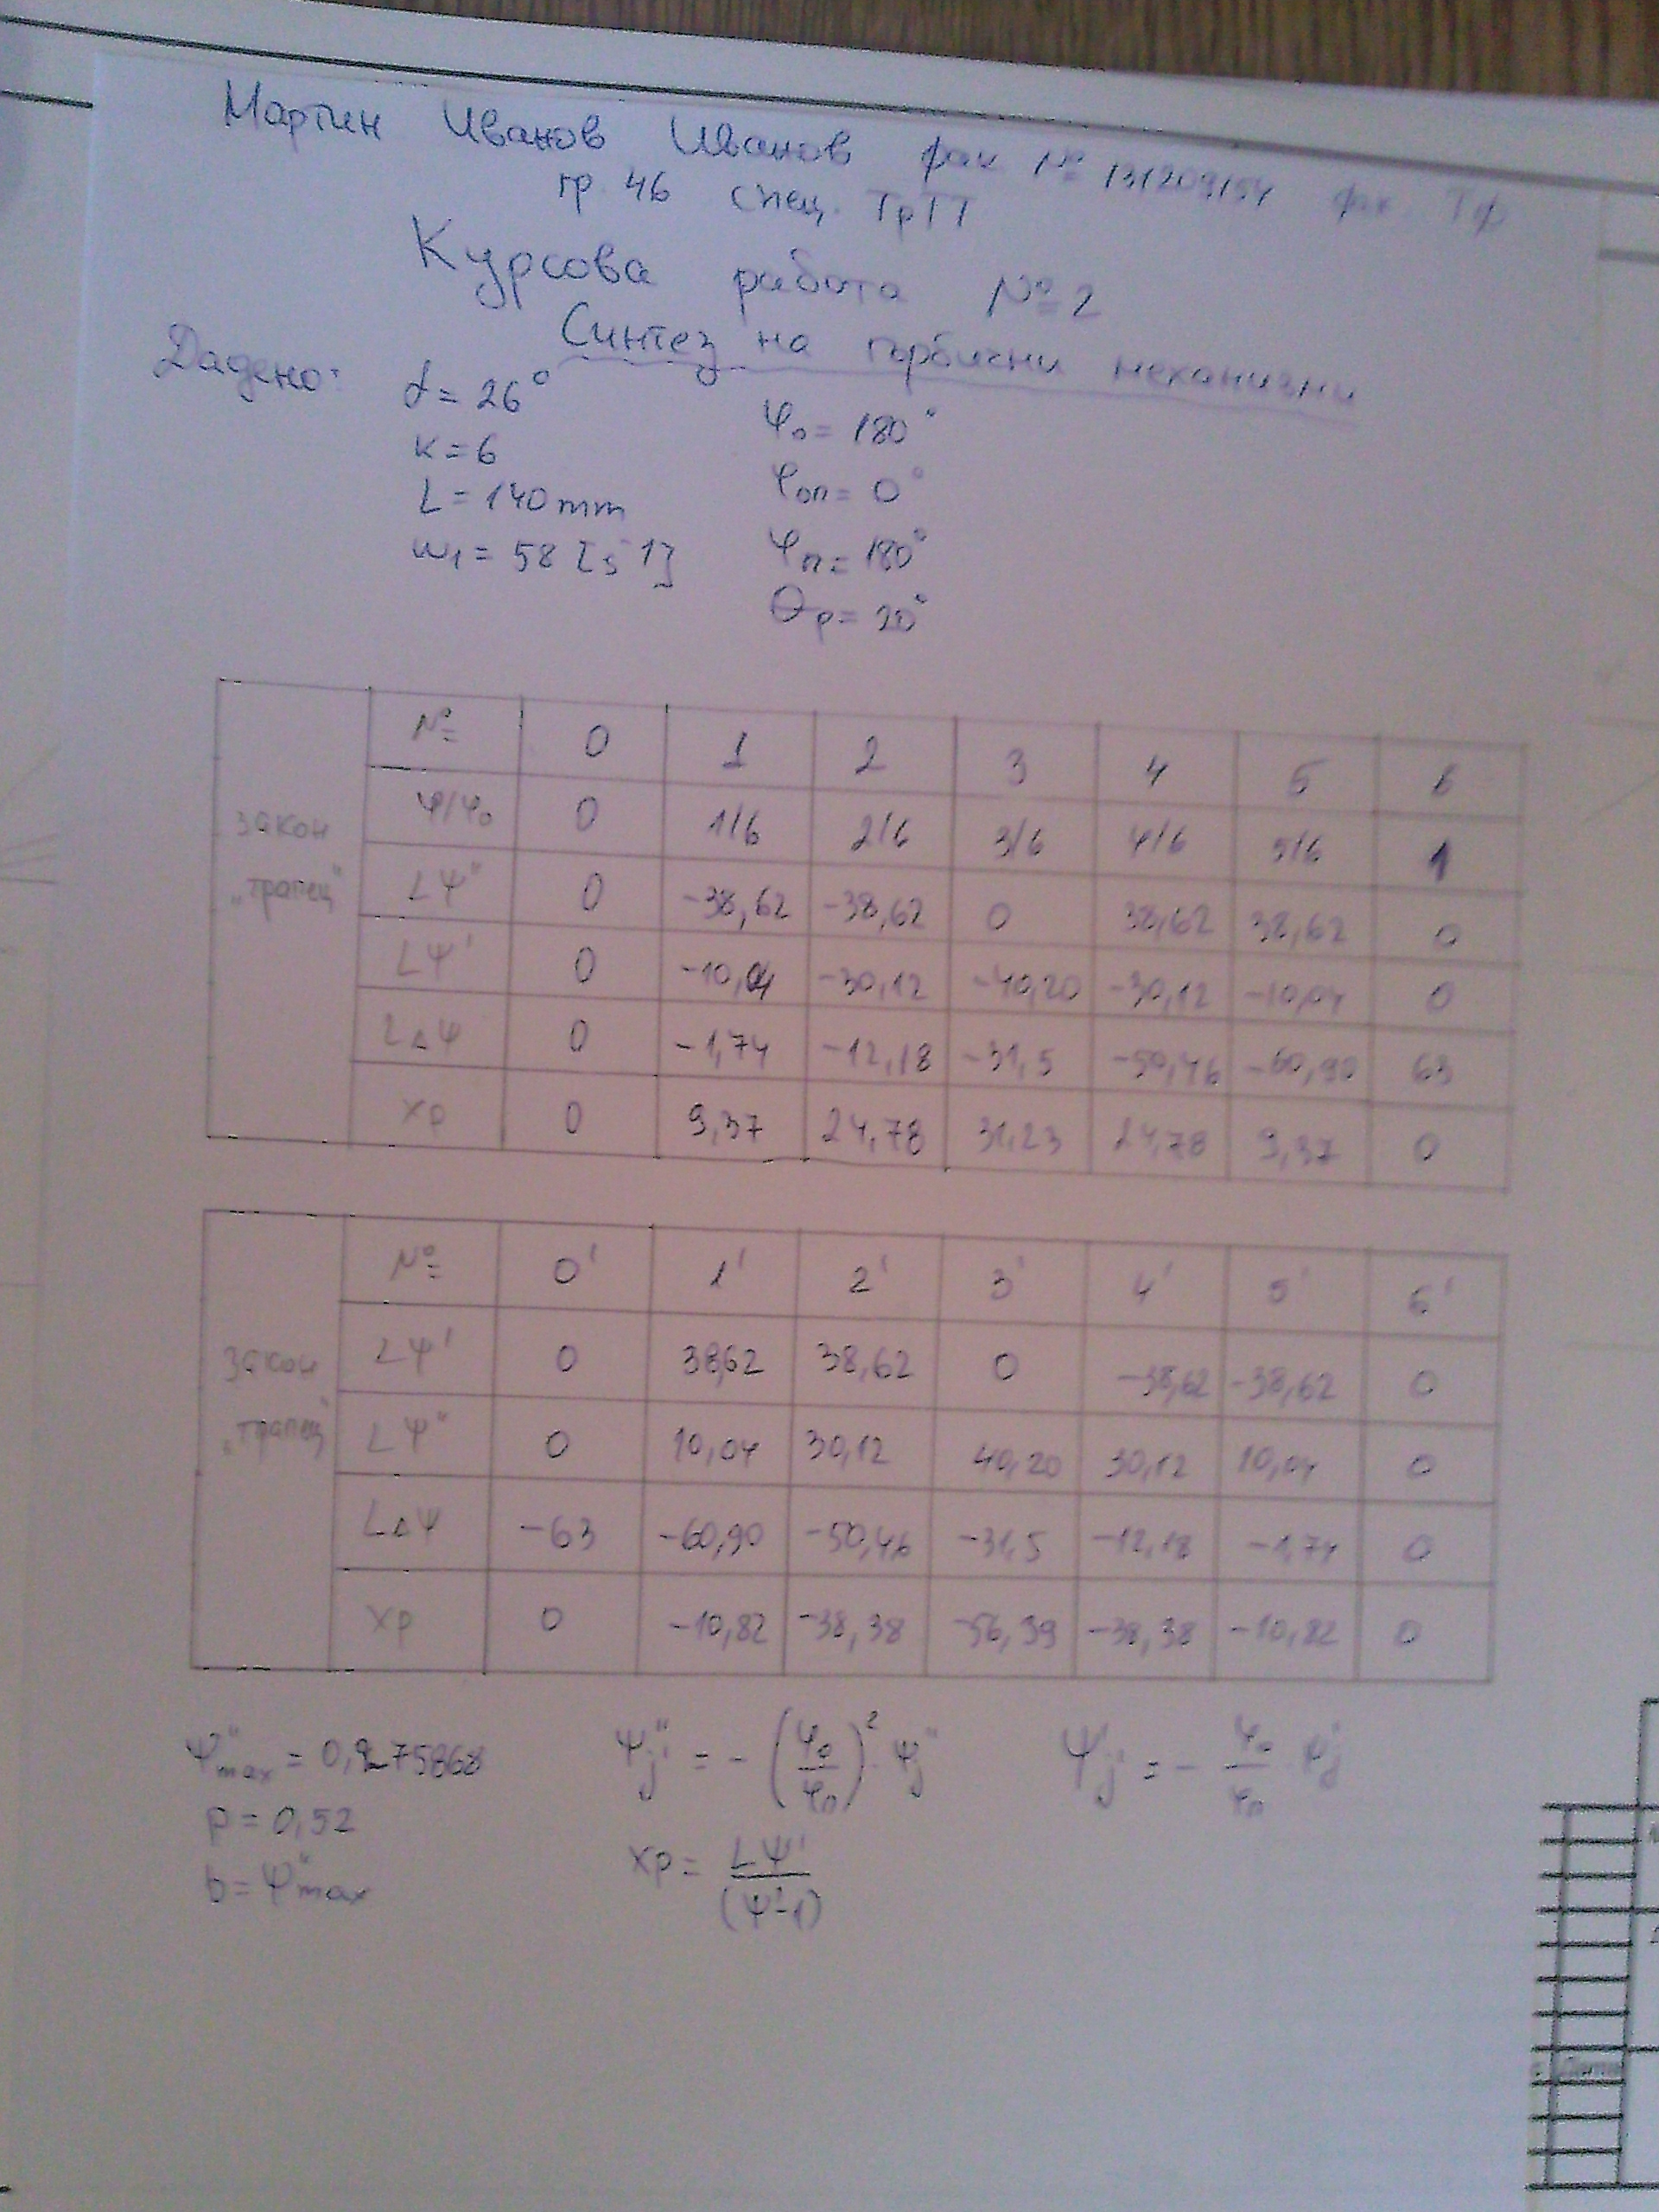 Мартин Иванов Иванов фак № 131209154 фак. ТФ
гр. 46 спец. ТрТТ
Курсова работа № 2
Синтез на гърбични механизми
Дадено:
α = 26° φ₀ = 180°
k = 6 φоп = 0°
L = 140 mm φп = 180°
ω₁ = 58 [s⁻1] Θр = 20°
закон „трапец"
№ 0 1 2 3 4 5 6
φ/φ₀ 0 1/6 2/6 3/6 4/6 5/6 1
LΨ" 0 -38,62 -38,62 0 38,62 38,62 0
LΨ' 0 -10,04 -30,12 -40,20 -30,12 -10,04 0
LΔΨ 0 -1,74 -12,18 -31,5 -50,46 -60,90 63
xp 0 9,37 24,78 31,23 24,78 9,37 0
закон „трапец"
№ 0' 1' 2' 3' 4' 5' 6'
LΨ' 0 38,62 38,62 0 -38,62 -38,62 0
LΨ" 0 10,04 30,12 40,20 30,12 10,04 0
LΔΨ -63 -60,90 -50,46 -31,5 -12,18 -1,74 0
xp 0 -10,82 -38,38 -56,39 -38,38 -10,82 0
Ψ"max = 0,275868 Ψj'" = -(φ₀/φп)² Ψj" Ψj' = - φ₀/φп Ψj'
p = 0,52 xp = LΨ'/(Ψ'-1)
b = Ψ"max